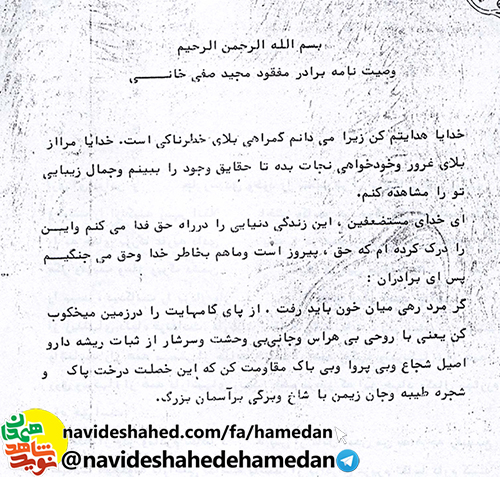 بسم الله الرحمن الرحیم
وصیت نامه برادر مفقود مجید صفی خانـــی
خدایا هدایتم کن زیرا می دانم گمراهی بلای خطرناکی است. خدایا مرااز
بلای غرور وخودخواهی نجات بده تا حقایق وجود را ببینم وجمال زیبایی
تو را مشاهده کنم.
ای خدای مستضعفین ، این زندگی دنیایی را درراه حق فدا می کنم وایـن
را درک کرده ام که حق ، پیروز است وماهم بخاطر خدا وحق می جنگیـم
پس ای برادران :
گر مرد رهی میان خون باید رفت ، از پای گامهایت را درزمین میخکوب
کن یعنی با روحی بی هراس وجانی‌بی وحشت وسرشار از ثبات ریشه دارو
اصیل شجاع وبی پروا وبی باک مقاومت کن که این خصلت درخت پاک و
شجره طیبه وجان زیمن با شاخ وبرگی برآسمان بزرگ.
navideshahed.com/fa/hamedan
@navideshahedehamedan
نوید شاهد همدان